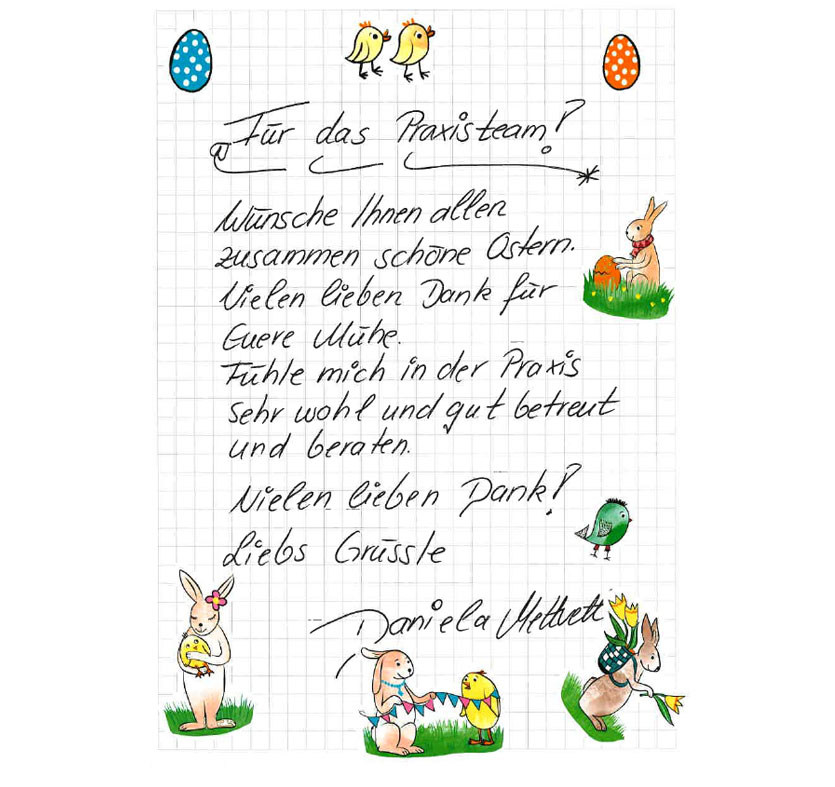 Für das Praxisteam!
Wünsche Ihnen allen
zusammen schöne Ostern.
Vielen lieben Dank für
Euere Mühe.
Fühle mich in der Praxis
sehr wohl und gut betreut
und beraten.
Vielen lieben Dank!
Liebs Grüssle
Daniela